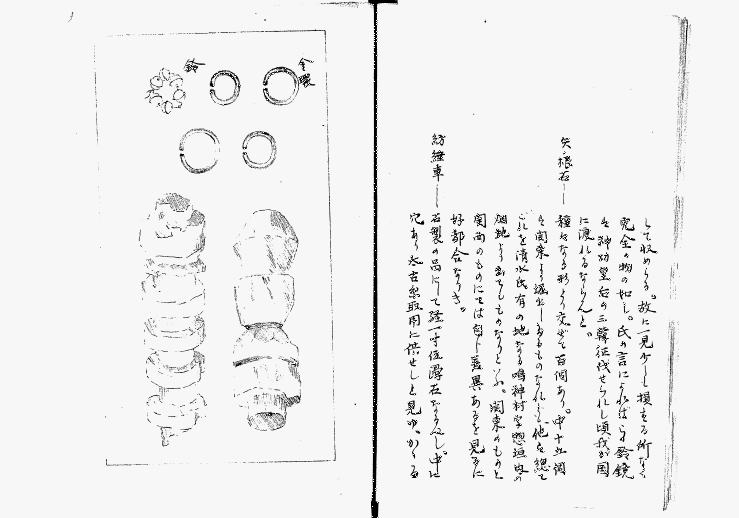 して収めらる。故に一見少しも損する所なく
完全の物の如し。氏の言によれば此鈴鏡
は神功皇后の三韓征伐せられし頃我が国
に渡れるならんと。
矢ノ根石――種々なる形を交ぜて百個あり。中十五個
は関東より堀出しあるものなれども他は総て
これを清水氏有の地なる鳴神村字惣垣内の
畑地より出でしものなりといふ。関東のものと
関西のものとには自ら差異あるを見るに
好都合なりき。
紡績車――石製の品にして径一寸位滑石ならんし中に
穴あり太古糸取用に供せしと見ゆ、かゝる
金環
鈴